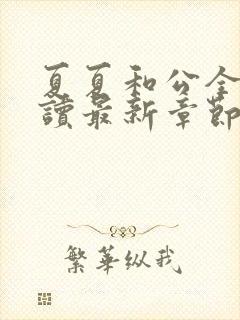 夏夏和公全
讀最新章節
繁華纵我